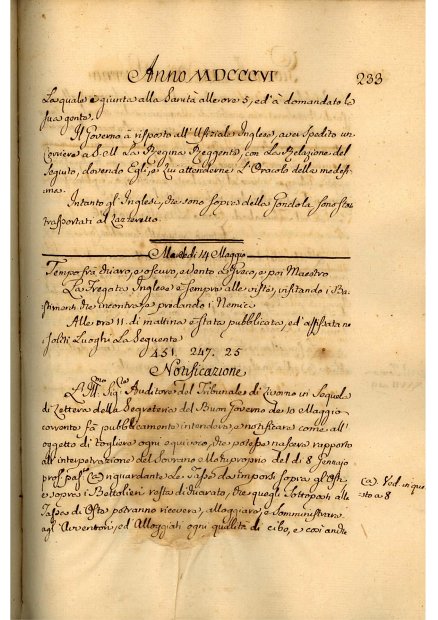 Anno MDCCCVI 233
La quale è giunta alla Sanità alle ore 5, ed' à domandato la
sua gente.
Il Governo à risposto all' Ufiziale Inglese, aver spedito un
Corriere a S. M. La Regina Reggente, con La Relazione del
seguito, dovendo Egli, e Lui attenderne L' Oracolo della medesi-
ma.
Intanto gl' Inglesi, che sono sopra della Gondola sono stati
trasportati al Lazzeretto.
Mercoledì 14 Maggio
Tempo frà chiaro, e oscuro, e vento da Greco, e poi Maestro
La Fregata Inglese è sempre alle viste, visitando i Ba-
stimenti che incontra, e predando i Nemici
Alle ore 11 di mattina è stata pubblicata, ed' affissata ne
i soliti Luoghi La seguente
451. 247. 25
Notificazione
L' Sig. Auditore del Tribunale di Livorno in sequela
di Lettera della Segreteria del Buon Governo de 10 Maggio
corrente fà pubblicamente intendere, e notificare come all'
oggetto di togliere ogni equivoco, che potesse nascere rapporto
all' interpetrazione del Sovrano Motuproprio del dì 8 Gennajo
pros. pas. (a) riguardante Le Tasse da imporsi sopra gl' Osti
e sopra i Bettolieri resta dichiarato, che quegli sottoposti alla
Tassa di Oste potranno ricevere, alloggiare, e somministrare
agl' Avventori, ed Alloggiati ogni qualità di cibo, e così anche
(a) Ved. in
a 8